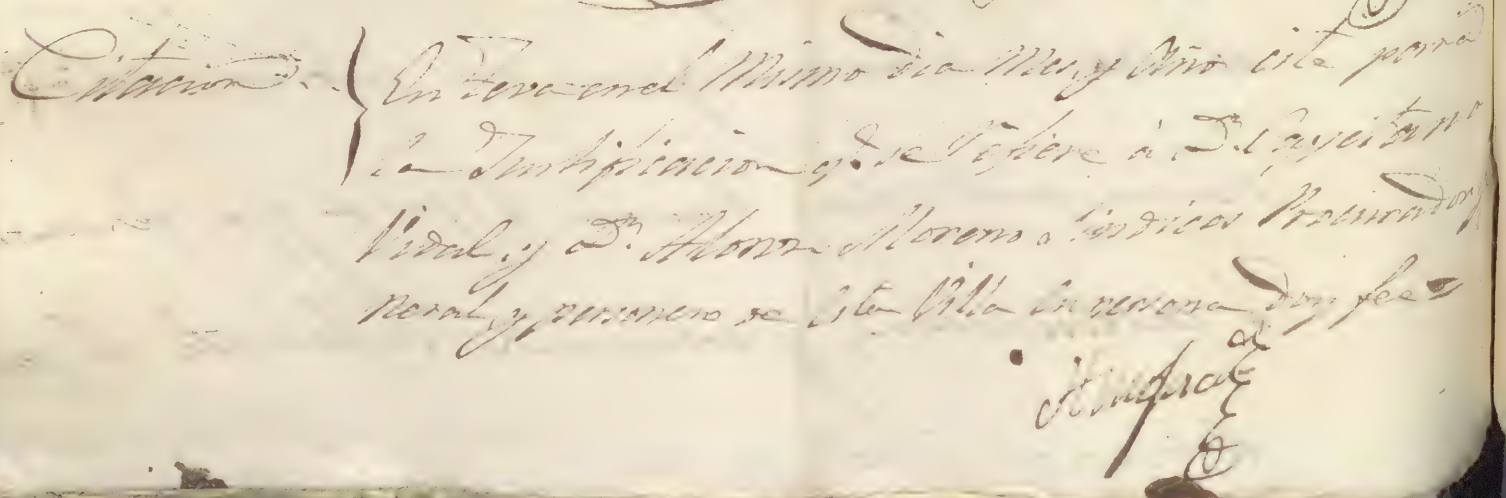 Citacion } En Teva en el Mismo dia Mes, y Año cite para
la Justificacion q.e se refiere à D.n Cayetano
Vidal, y D.n Alonso Moreno Sindicos Procurador
neral, y personero de esta Villa en persona doy fee=